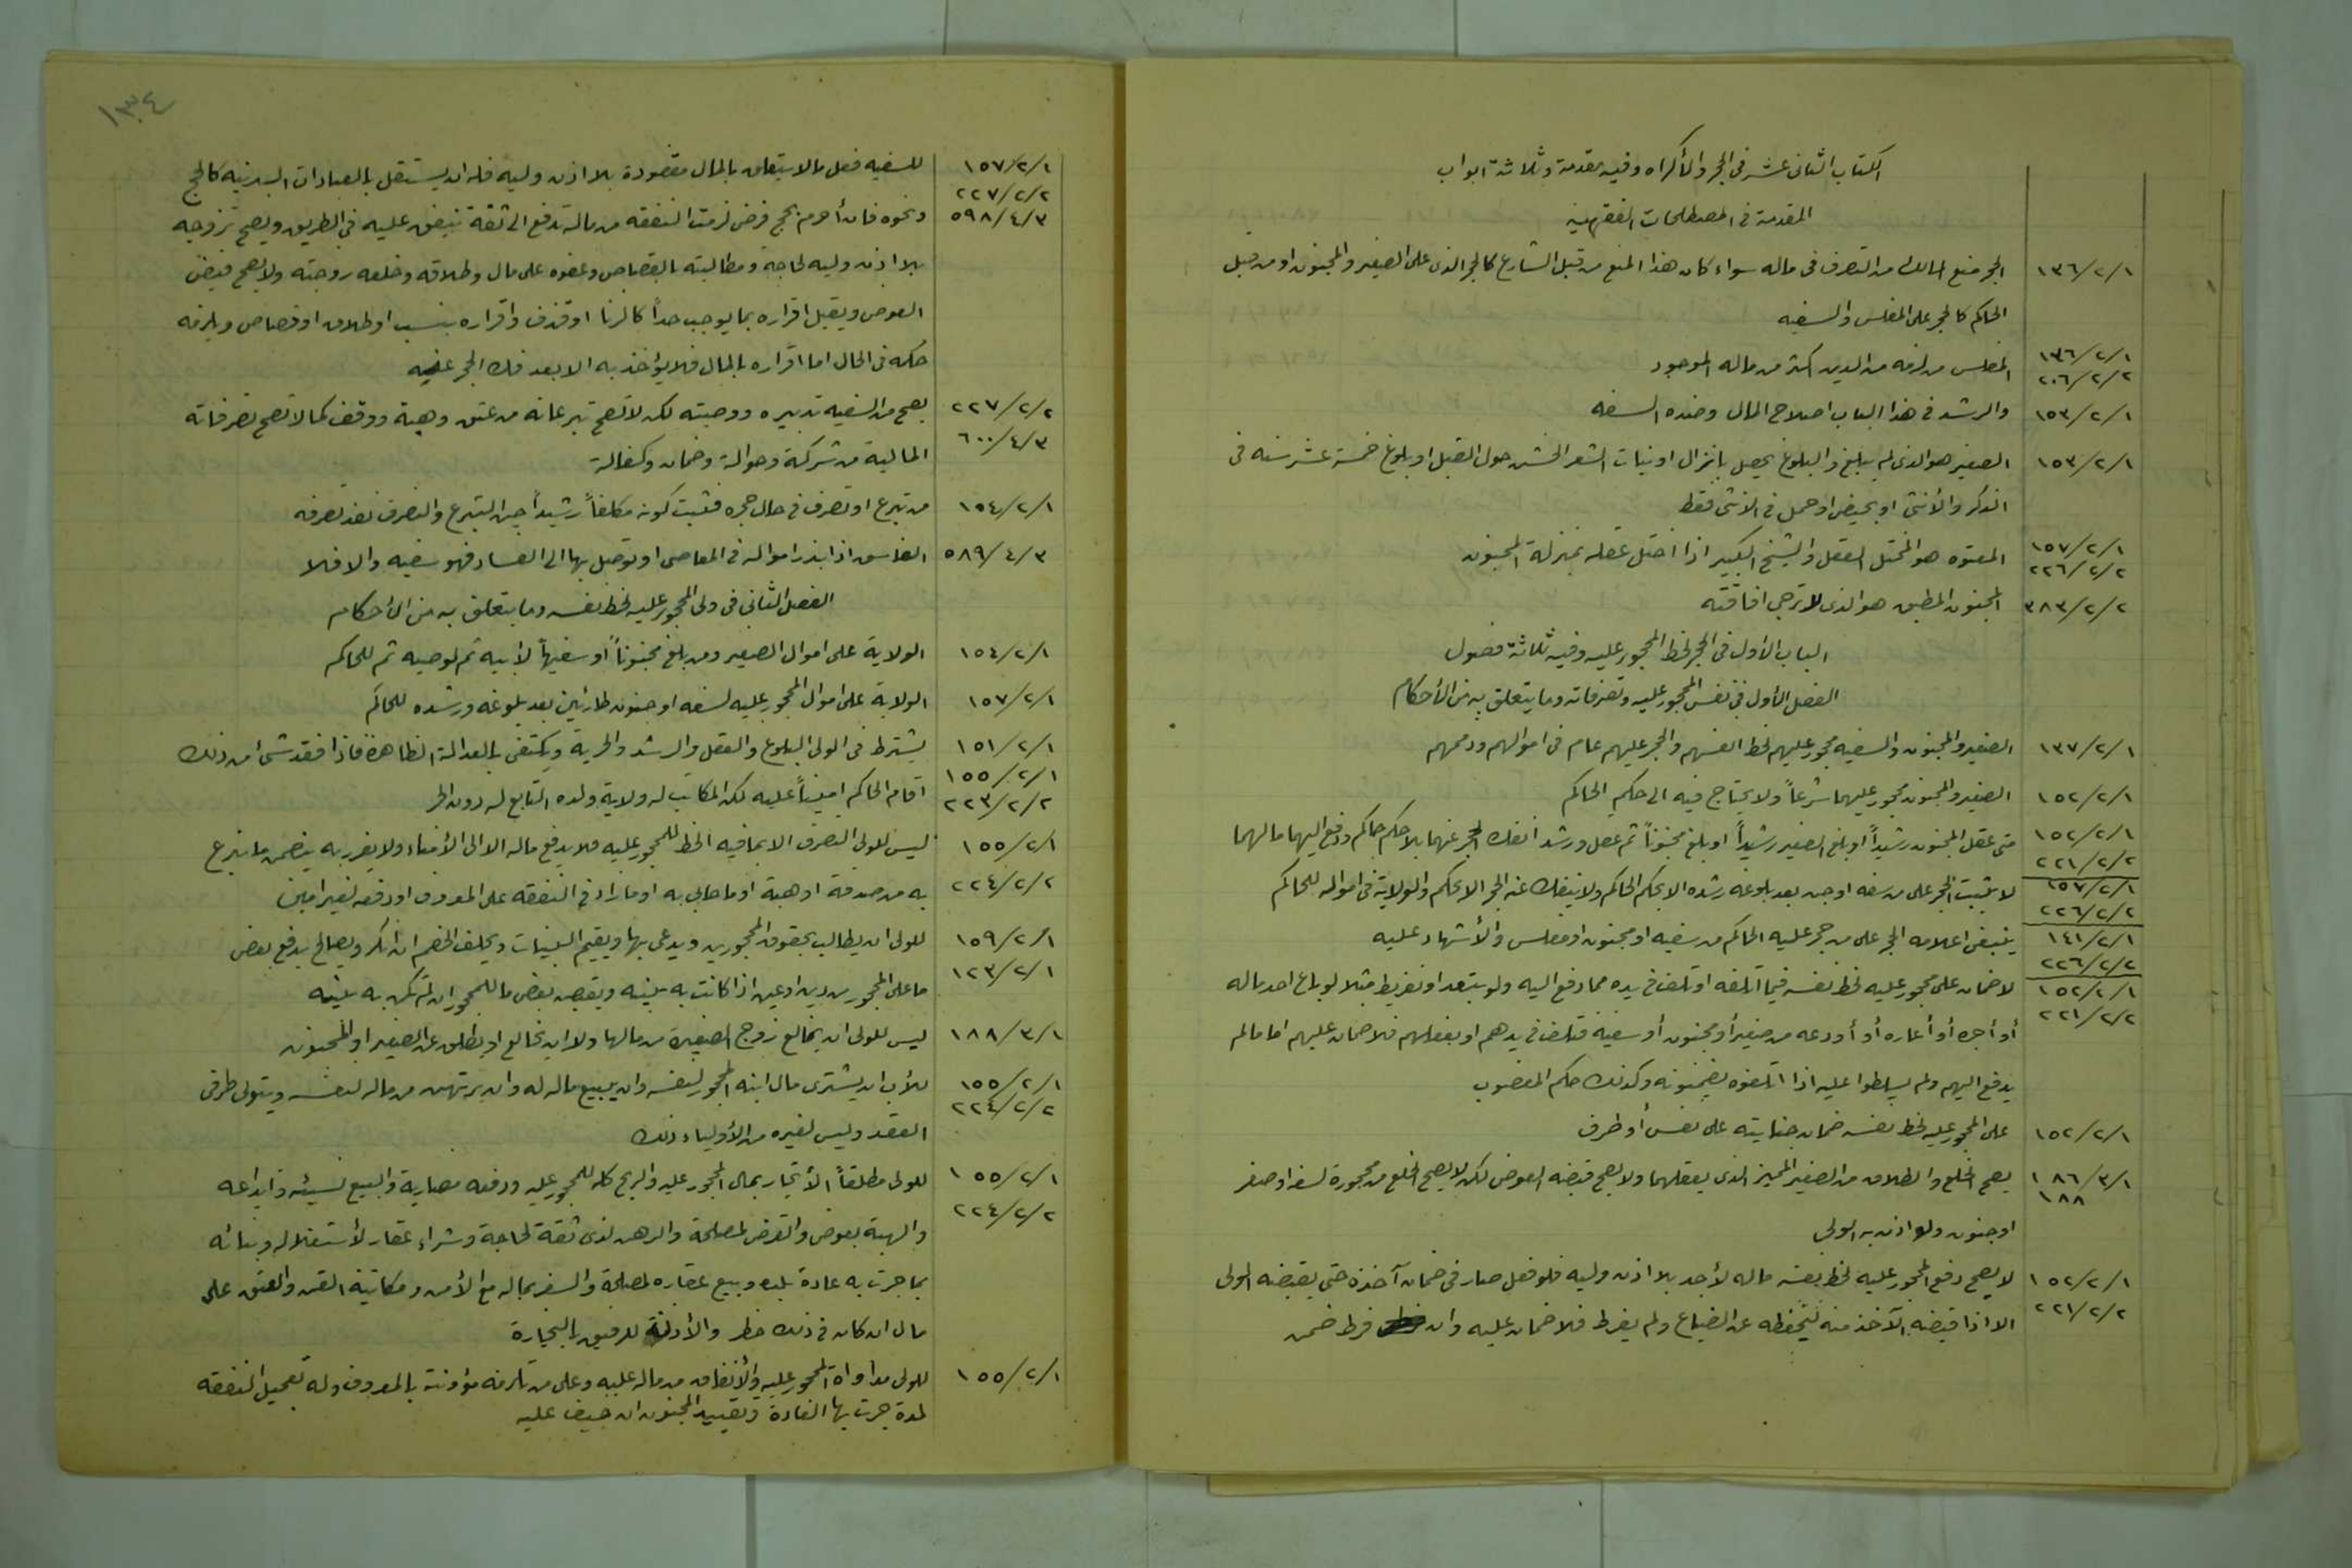 الكتاب الثاني عشر في الحجر والأكراه وفيه مقدمة وثلاثة ابواب
المقدمة في المصطلحات الفقهيه
١٣٦/٢/١ الحجر منع المالك من التصرف في ماله سواء كان هذا المنع من قبل الشارع كالحجر الذي على الصغير والمجنون او من قبل
الحاكم كالحجر على المفلس والسفيه
١٣٦/٢/١ ٢٠٦/٢/٢ المفلس من لزمه من الدين اكثر من ماله الموجود
١٥٣/٢/١ والرشد في هذا الباب اصلاح المال وضده السفه
١٥٣/٢/١ الصغير هو الذي لم يبلغ والبلوغ يحصل بانزال او نبات الشعر الخشن حول القبل او بلوغ خمسة عشر سنه في
الذكر والأنثى او بحيض او حمل في الانثى فقط
١٥٧/٢/١ ٢٢٦/٢/٢ المعتوه هو المختل العقل والشيخ الكبير اذا اختل عقله بمنزلة المجنون
٣٨٣/٢/٢ المجنون المطبق هو الذي لا ترجى افاقته
الباب الأول في الحجر لحظ المحجور عليه وفيه ثلاثة فصول
الفصل الأول في نفس المحجور عليه وتصرفاته وما يتعلق به من الأحكام
١٣٧/٢/١ الصغير والمجنون والسفيه محجور عليهم لحظ انفسهم والحجر عليهم عام في اموالهم وذممهم
١٥٢/٢/١ الصغير والمجنون محجور عليهما شرعاً ولا يحتاج فيه الى حكم الحاكم
١٥٢/٢/١ ٢٢١/٢/٢ متى عقل المجنون رشيداً او بلغ الصغير رشيداً او بلغ مجنوناً ثم عقل ورشد انفك الحجر عنهما بلا حكم حاكم ودفع اليهما مالهما
١٥٧/٢/١ ٢٢٦/٢/٢ لا يثبت الحجر على من سفه او جن بعد بلوغه رشده الا بحكم الحاكم ولا ينفك عنه الحجر الا بحكم والولاية في امواله للحاكم
١٤١/٢/١ ٢٢٦/٢/٢ ينبغي اعلامه الحجر على من حجر عليه الحاكم من سفيه او مجنون او مفلس والأشهاد عليه
١٥٢/٢/١ ٢٢١/٢/٢ لا ضمان على محجور عليه لحظ نفسه فيما اتلفه او تلف في يده مما دفع اليه ولو بتعد او تفريط مثلا لو باع احد ماله
أو أجره أو أعاره أو أودعه من صغير أو مجنون أو سفيه فتلف في يدهم او بفعلهم فلا ضمان عليهم اما مالم
يدفع اليهم ولم يسلطوا عليه اذا اتلفوه يضمنونه وكذلك حكم المغصوب
١٥٢/٢/١ على المحجور عليه لحظ نفسه ضمان جنايته على نفس أو طرف
١٨٦/٣/١ ١٨٨ يصح الخلع والطلاق من الصغير المميز الذي يعقلهما ولا يصح قبضه العوض لكن لا يصح الخلع من محجورة لسفه او صغر
او جنون ولو اذن به الولي
١٥٢/٢/١ ٢٢١/٢/٢ لا يصح دفع المحجور عليه لحظ نفسه ماله لأحد بلا اذن وليه فلو فعل صار في ضمان آخذه حتى يقبضه الولي
الا اذا قبضه الآخذ منه ليحفظه عن الضياع ولم يفرط فلا ضمان عليه وان فرط ضمن
١٣٤
١٥٧/٢/١ ٢٢٧/٢/٢ للسفيه فعل مالا يتعلق بالمال مقصوده بلا اذن وليه فله ان يستقل بالعبادات البدنيه كالحج
٥٩٨/٤/٣ ونحوه فان أحرم بحج فرض لزمت النفقه من ماله تدفع الى ثقة ينفق عليه في الطريق ويصح تزوجه
بلا اذن وليه لحاجة ومطالبته بالقصاص وعفوه على مال وطلاقه وخلعه زوجته ولا يصح قبض
العوض ويقبل اقراره بما يوجب حداً كالزنا او قذف واقراره بنسب او طلاق او قصاص ويلزمه
حكمه في الحال اما اقراره بالمال فلا يؤاخذ به الا بعد فك الحجر عنه
٢٢٧/٢/٢ يصح من السفيه تدبيره ووصيته لكن لا تصح تبرعاته من عتق وهبة ووقف كما لا تصح تصرفاته
٦٠٠/٤/٣ المالية من شركة وحوالة وضمان وكفالة
١٥٤/٢/١ من تبرع او تصرف في حال حجره فثبت كونه مكلفاً رشيداً حين التبرع والتصرف نفذ تصرفه
٥٨٩/٤/٣ الفاسق اذا بذر امواله في المعاصي او توصل بها الى الفساد فهو سفيه والا فلا
الفصل الثاني في ولي المحجور عليه لحظ نفسه وما يتعلق به من الأحكام
١٥٤/٢/١ الولاية على اموال الصغير ومن بلغ مجنوناً أو سفيهاً لأبيه ثم لوصيه ثم للحاكم
١٥٧/٢/١ الولاية على اموال المحجور عليه لسفه او جنون طارئين بعد بلوغه ورشده للحاكم
١٥١/٢/١ يشترط في الولي البلوغ والعقل والرشد والحرية ويكتفى بالعدالة الظاهرة فاذا فقد شيئا من ذلك
١٥٥/٢/١ ٢٢٣/٢/٢ اقام الحاكم اميناً عليه لكن المكاتب له ولاية ولده التابع له دون الحر
١٥٥/٢/١ ليس للولي التصرف الا بما فيه الحظ للمحجور عليه فلا يدفع ماله الا الى الأمناء ولا يغرر به يضمن ما تبرع
٢٢٤/٢/٢ به من صدقة او هبة او ما حابى به او ما زاد في النفقه على المعروف او دفعه لغير امين
١٥٩/٢/١ للولي ان يطالب بحقوق المحجورين ويدعي بها ويقيم البينات ويحلف الخصم ان انكر ويصالح بدفع بعض
١٢٣/٢/١ ما على المحجور من دين او عين اذا كانت به بينه ويقبض بعض ما للمحجور ان لم تكن به بينه
١٨٨/٣/١ ليس للولي ان يخالع زوج الصغيرة من مالها ولا ان يخالع او يطلق عن الصغير او المجنون
١٥٥/٢/١ ٢٢٤/٢/٢ للأب ان يشتري مال ابنه المحجور لنفسه وان يبيع ماله له وان يرتهن من ماله لنفسه ويتولى طرفي
العقد وليس لغيره من الأولياء ذلك
١٥٥/٢/١ للولي مطلقاً الأتجار بمال المحجور عليه والربح كله للمحجور عليه ودفعه مضاربة والبيع نسيئه وايداعه
٢٢٤/٢/٢ والهبة بعوض والقرض لمصلحة والرهن لدى ثقة لحاجة وشراء عقار لأستغلاله وبنائه
بما جرت به عادة بلده وبيع عقاره لمصلحة والسفر بماله مع الأمن ومكاتبة القن والعتق على
مال ان كان في ذلك حظ والأذن للرقيق بالتجارة
١٥٥/٢/١ للولي مداواة المحجور عليه والأنفاق من ماله عليه وعلى من تلزمه مؤونته بالمعروف وله تعجيل النفقه
لمدة جرت بها العادة وتقييد المجنون ان خيف عليه